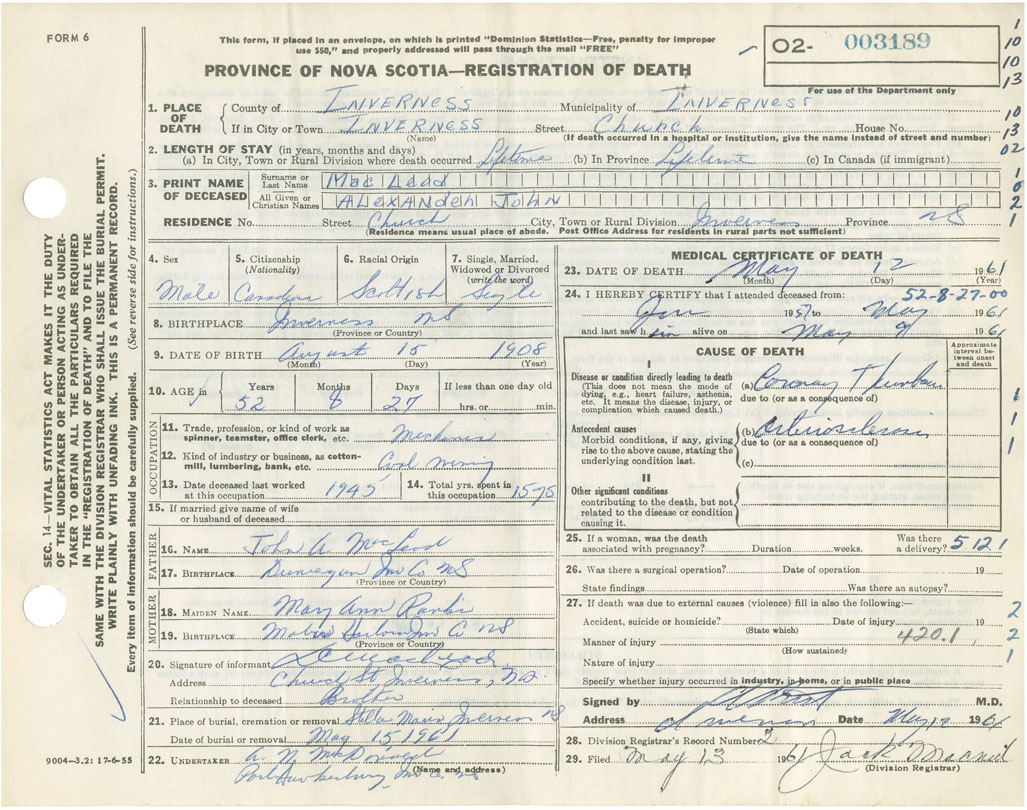 FORM 6
This form, if placed in an envelope, on which is printed "Dominion Statistics—Free, penalty for improper
use $50," and properly addressed will pass through the mail "FREE"
PROVINCE OF NOVA SCOTIA—REGISTRATION OF DEATH
02- 003189
For use of the Department only
1
10
10
13
10
13
02
1
0
2
1
1. PLACE OF DEATH
County of INVERNESS Municipality of INVERNESS
If in City or Town INVERNESS Street Church House No.
(Name) (If death occurred in a hospital or institution, give the name instead of street and number)
2. LENGTH OF STAY (in years, months and days)
(a) In City, Town or Rural Division where death occurred Lifetime (b) In Province Lifetime (c) In Canada (if immigrant)
3. PRINT NAME OF DECEASED
Surname or Last Name Mac Leod
All Given or Christian Names ALEXANDER JOHN
RESIDENCE No. Street Church City, Town or Rural Division Inverness Province NS
(Residence means usual place of abode. Post Office Address for residents in rural parts not sufficient)
4. Sex Male
5. Citizenship (Nationality) Canadian
6. Racial Origin Scottish
7. Single, Married, Widowed or Divorced (write the word) Single
8. BIRTHPLACE Inverness NS
(Province or Country)
9. DATE OF BIRTH August 15 1908
(Month) (Day) (Year)
10. AGE Years 52 Months 8 Days 27 If less than one day old hrs. or min.
OCCUPATION
11. Trade, profession, or kind of work as spinner, teamster, office clerk, etc. Mechanic
12. Kind of industry or business, as cotton-mill, lumbering, bank, etc. Coal mining
13. Date deceased last worked at this occupation 1945
14. Total yrs. spent in this occupation 15-75
15. If married give name of wife or husband of deceased
FATHER
16. NAME John A. MacLeod
17. BIRTHPLACE Dunvegan Inv Co NS
(Province or Country)
MOTHER
18. MAIDEN NAME Mary Ann Rankin
19. BIRTHPLACE Mabou Harbour Inv Co NS
(Province or Country)
20. Signature of informant
Address Church St Inverness, NS
Relationship to deceased Brother
21. Place of burial, cremation or removal Stella Maris Inverness NS
Date of burial or removal May 15 1961
22. UNDERTAKER A. N. McDonald
Port Hawkesbury Inv Co NS
(Name and address)
9004—3,2: 17-6-55
MEDICAL CERTIFICATE OF DEATH
23. DATE OF DEATH May 12 1961
(Month) (Day) (Year)
24. I HEREBY CERTIFY that I attended deceased from: 52-8-27-00
Jan 1957 to May 1961
and last saw him alive on May 9 1961
CAUSE OF DEATH
Approximate interval between onset and death
I
Disease or condition directly leading to death
(This does not mean the mode of dying, e.g., heart failure, asthenia, etc. It means the disease, injury, or complication which caused death.)
(a) Coronary
due to (or as a consequence of)
Antecedent causes
Morbid conditions, if any, giving rise to the above cause, stating the underlying condition last.
(b) Arteriosclerosis
due to (or as a consequence of)
(c)
II
Other significant conditions
contributing to the death, but not related to the disease or condition causing it.
1
1
1
25. If a woman, was the death associated with pregnancy? Duration weeks. Was there a delivery? 5121
26. Was there a surgical operation? Date of operation 19
State findings Was there an autopsy?
27. If death was due to external causes (violence) fill in also the following:—
Accident, suicide or homicide? Date of injury 19
(State which)
Manner of injury 420.1
(How sustained)
Nature of injury
Specify whether injury occurred in industry, in home, or in public place
2
2
1
Signed by M.D.
Address Inverness Date May 12 1961
28. Division Registrar's Record Number 2
29. Filed May 13 1961
(Division Registrar)
SEC. 14—VITAL STATISTICS ACT MAKES IT THE DUTY
OF THE UNDERTAKER OR PERSON ACTING AS UNDER-
TAKER TO OBTAIN ALL THE PARTICULARS REQUIRED
IN THE "REGISTRATION OF DEATH" AND TO FILE THE
SAME WITH THE DIVISION REGISTRAR WHO SHALL ISSUE THE BURIAL PERMIT.
WRITE PLAINLY WITH UNFADING INK. THIS IS A PERMANENT RECORD.
Every item of information should be carefully supplied. (See reverse side for instructions.)